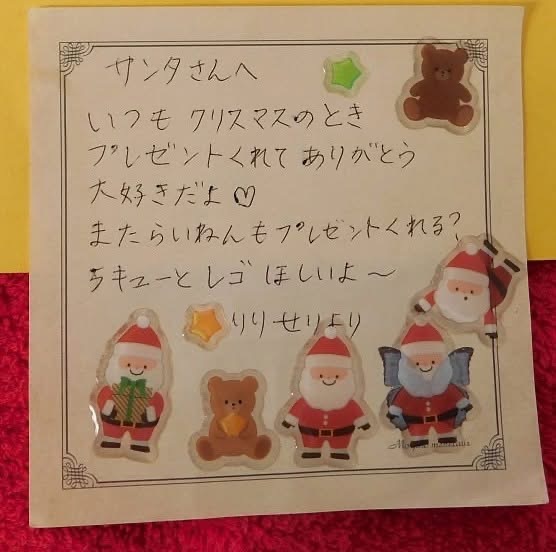 サンタさんへ
いつも クリスマスのとき
プレゼントくれて ありがとう
大好きだよ♡
またらいねんもプレゼントくれる?
ちキューと レゴ ほしいよ〜
りり せりより